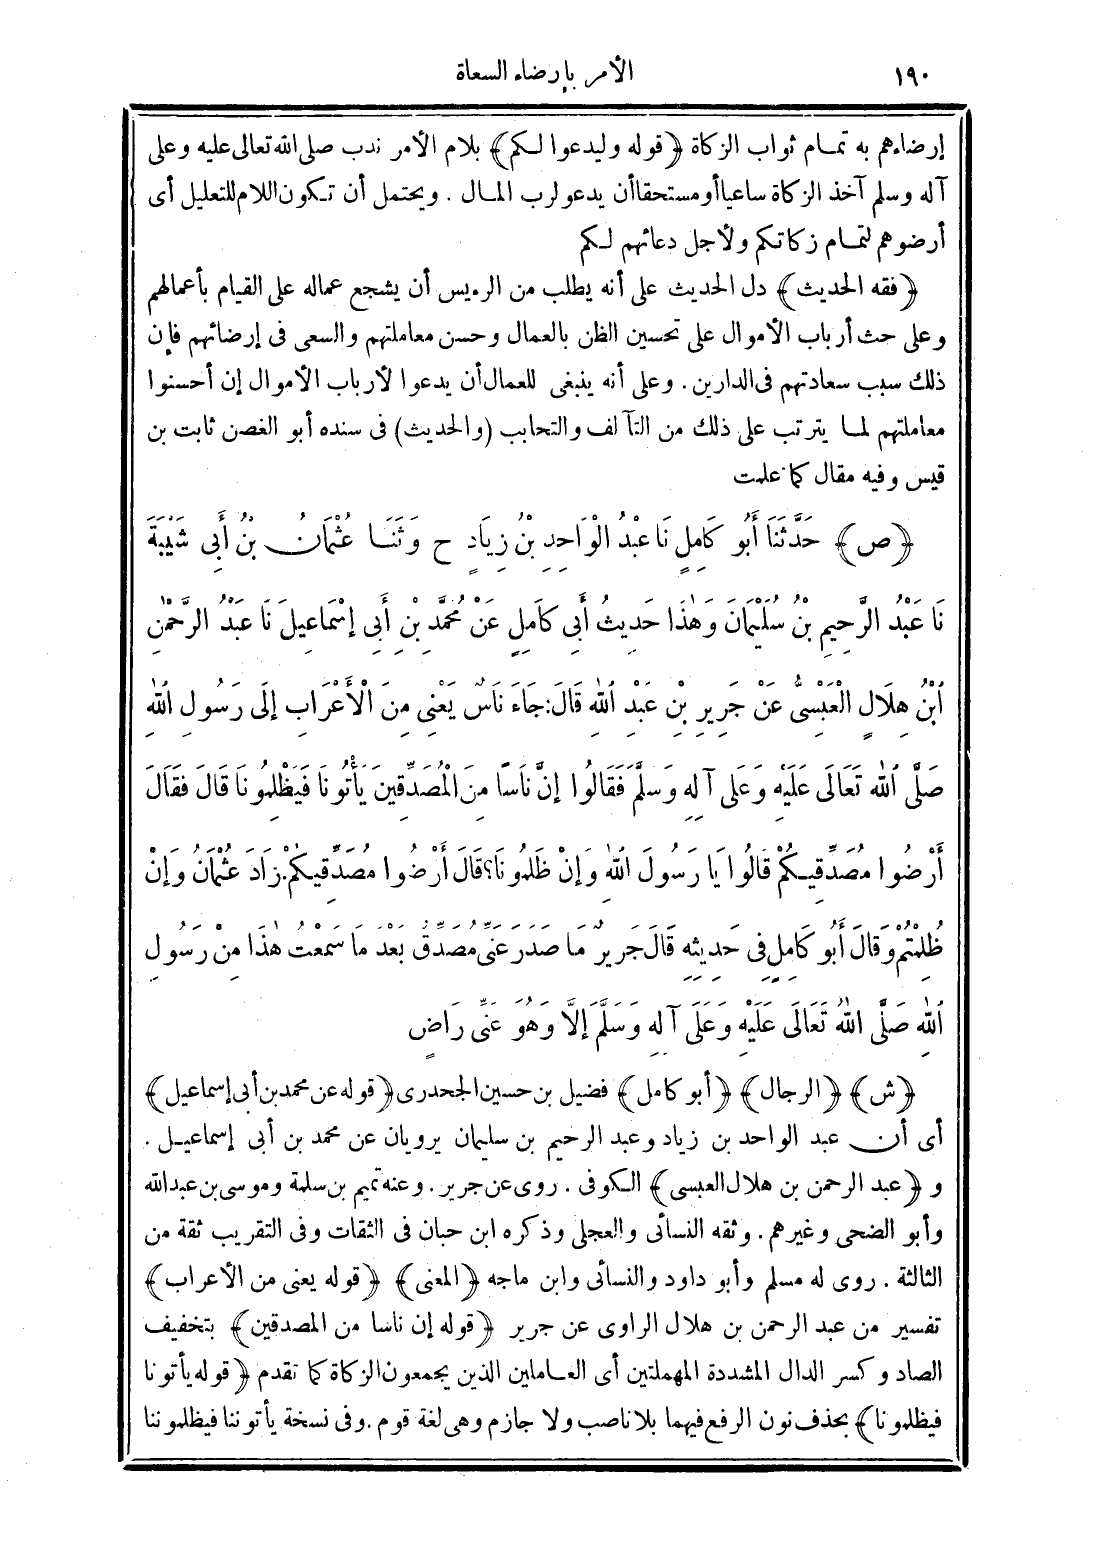 ١٩٠ الأمر بإرضاء السعاة
إرضاءهم به تمام ثواب الزكاة ﴿قوله وليدعوا لكم﴾ بلام الأمر ندب صلى الله تعالى عليه وعلى
آله وسلم آخذ الزكاة ساعيا أو مستحقا أن يدعو لرب المال . ويحتمل أن تكون اللام للتعليل أى
أرضوهم لتمام زكاتكم ولأجل دعائهم لكم
﴿فقه الحديث﴾ دل الحديث على أنه يطلب من الرءيس أن يشجع عماله على القيام بأعمالهم
وعلى حث أرباب الأموال على تحسين الظن بالعمال وحسن معاملتهم والسعى فى إرضائهم فإن
ذلك سبب سعادتهم فى الدارين . وعلى أنه ينبغى للعمال أن يدعوا لأرباب الأموال إن أحسنوا
معاملتهم لما يترتب على ذلك من التآلف والتحابب (والحديث) فى سنده أبو الغصن ثابت بن
قيس وفيه مقال كما علمت
﴿ص﴾ حَدَّثَنَا أَبُو كَامِلٍ نَا عَبْدُ الْوَاحِدِ بْنُ زِيَادٍ ح وَثَنَا عُثْمَانُ بْنُ أَبِى شَيْبَةَ
نَا عَبْدُ الرَّحِيمِ بْنُ سُلَيْمَانَ وَهٰذَا حَدِيثُ أَبِى كَامِلٍ عَنْ مُحَمَّدِ بْنِ أَبِى إِسْمَاعِيلَ نَا عَبْدُ الرَّحْمٰنِ
ابْنُ هِلَالٍ الْعَبْسِىُّ عَنْ جَرِيرِ بْنِ عَبْدِ اللهِ قَالَ: جَاءَ نَاسٌ يَعْنِى مِنَ الْأَعْرَابِ إِلَى رَسُولِ اللهِ
صَلَّى اللهُ تَعَالَى عَلَيْهِ وَعَلَى آلِهِ وَسَلَّمَ فَقَالُوا إِنَّ نَاسًا مِنَ الْمُصَدِّقِينَ يَأْتُونَا فَيَظْلِمُونَا قَالَ فَقَالَ
أَرْضُوا مُصَدِّقِيكُمْ قَالُوا يَا رَسُولَ اللهِ وَإِنْ ظَلَمُونَا؟ قَالَ أَرْضُوا مُصَدِّقِيكُمْ. زَادَ عُثْمَانُ وَإِنْ
ظُلِمْتُمْ وَقَالَ أَبُو كَامِلٍ فِى حَدِيثِهِ قَالَ جَرِيرٌ مَا صَدَرَ عَنِّى مُصَدِّقٌ بَعْدَ مَا سَمِعْتُ هٰذَا مِنْ رَسُولِ
اللهِ صَلَّى اللهُ تَعَالَى عَلَيْهِ وَعَلَى آلِهِ وَسَلَّمَ إِلَّا وَهُوَ عَنِّى رَاضٍ
﴿ش﴾ ﴿الرجال﴾ ﴿أبو كامل﴾ فضيل بن حسين الجحدرى ﴿قوله عن محمد بن أبى إسماعيل﴾
أى أن عبد الواحد بن زياد وعبد الرحيم بن سليمان يرويان عن محمد بن أبى إسماعيل .
و ﴿عبد الرحمن بن هلال العبسى﴾ الكوفى . روى عن جرير . وعنه تميم بن سلمة وموسى بن عبد الله
وأبو الضحى وغيرهم . وثقه النسائى والعجلى وذكره ابن حبان فى الثقات وفى التقريب ثقة من
الثالثة . روى له مسلم وأبو داود والنسائى وابن ماجه ﴿المعنى﴾ ﴿قوله يعنى من الأعراب﴾
تفسير من عبد الرحمن بن هلال الراوى عن جرير ﴿قوله إن ناسا من المصدقين﴾ بتخفيف
الصاد وكسر الدال المشددة المهملتين أى العاملين الذين يجمعون الزكاة كما تقدم ﴿قوله يأتونا
فيظلمونا﴾ بحذف نون الرفع فيهما بلا ناصب ولا جازم وهى لغة قوم . وفى نسخة يأتوننا فيظلموننا